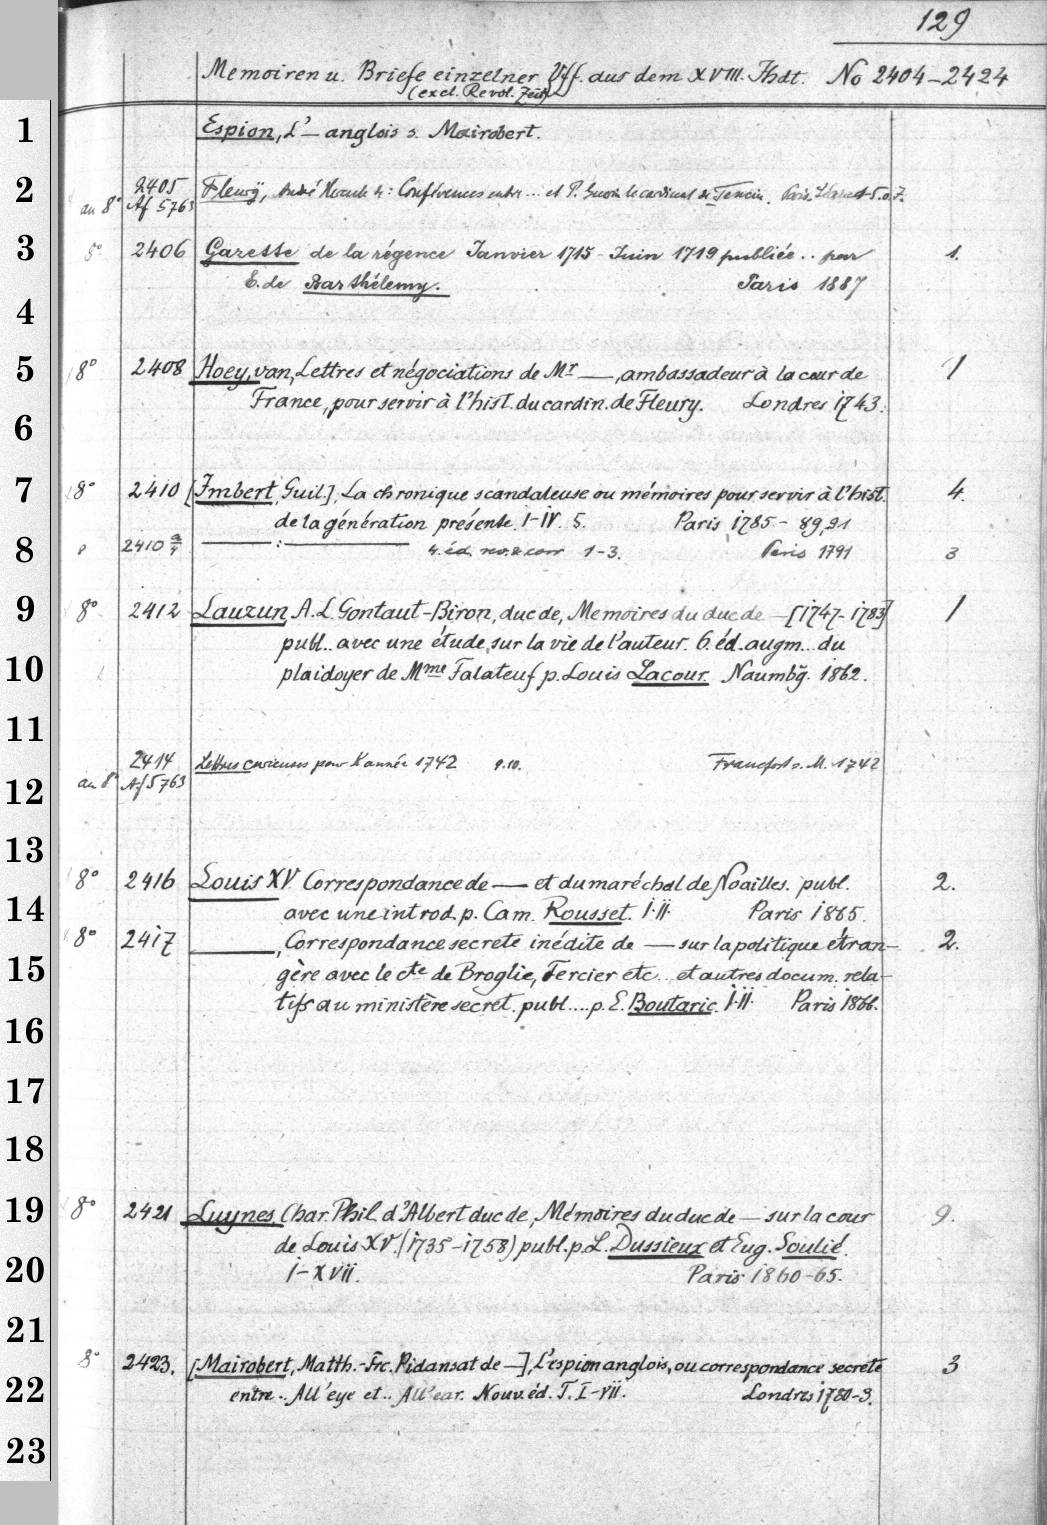 129
Memoiren u. Briefe einzelner Vff. aus dem XVIII. Jhdt. No 2404-2424
(excl. Revol. Zeit)
1 Espion, L'— anglois s. Mairobert.
2 2405 Fleury, André Hercule de: Conférences entre ... et P. Guerin le cardinal de Tencin. Paris
au 8° Af 5763
3 5° 2406 Gazette de la régence Janvier 1715 - Juin 1719 publiée .. par 1.
E. de Barthélemy. Paris 1887
4
5 8° 2408 Hoey, van, Lettres et négociations de Mr —, ambassadeur à la cour de 1
France, pour servir à l'hist. du cardin. de Fleury. Londres 1743.
6
7 8° 2410 [Imbert, Guil.], La chronique scandaleuse ou mémoires pour servir à l'hist. 4.
de la génération présente. I-IV. 5. Paris 1785- 89,91
8 2410 — : — 4. éd. rev. & corr 1-3. Paris 1791 3
9 8° 2412 Lauzun, A. L. Gontaut-Biron, duc de, Memoires du duc de — [1747-1783] 1
publ.. avec une étude sur la vie de l'auteur. 6. éd. augm... du
10 plaidoyer de Mme Falateuf p. Louis Lacour. Naumbg. 1862.
11
2414 Lettres curieuses pour l'année 1742 9.10. Francfort s. M. 1742
12 au 8° Af 5763
13
8° 2416 Louis XV. Correspondance de — et du maréchal de Noailles. publ. 2.
14 avec une introd. p. Cam. Rousset. I.II. Paris 1865.
8° 2417 —, Correspondance secrete inédite de — sur la politique étran- 2.
15 gère avec le cte de Broglie, Tercier etc... et autres docum. rela-
tifs au ministère secret. publ.... p. E. Boutaric. I-II. Paris 1866.
16
17
18
19 8° 2421 Luynes, Char. Phil. d'Albert duc de, Mémoires du duc de — sur la cour 9.
de Louis XV. (1735-1758) publ. p. L. Dussieux et Eug. Soulié.
20 I-XVII. Paris 1860-65.
21
8° 2423. [Mairobert, Matth.-Frc. Pidansat de —], L'espion anglois, ou correspondance secrete 3
22 entre.. All'eye et.. All'ear. Nouv. éd. T. I-VII. Londres 1780-3.
23